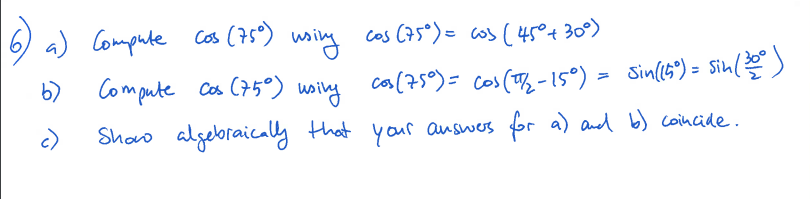 6) a) Compute cos (75°) using cos (75°) = cos (45° + 30°)
b) Compute cos (75°) using cos(75°) = cos(π/2 - 15°) = sin(15°) = sin(30°/2)
c) Show algebraically that your answers for a) and b) coincide.